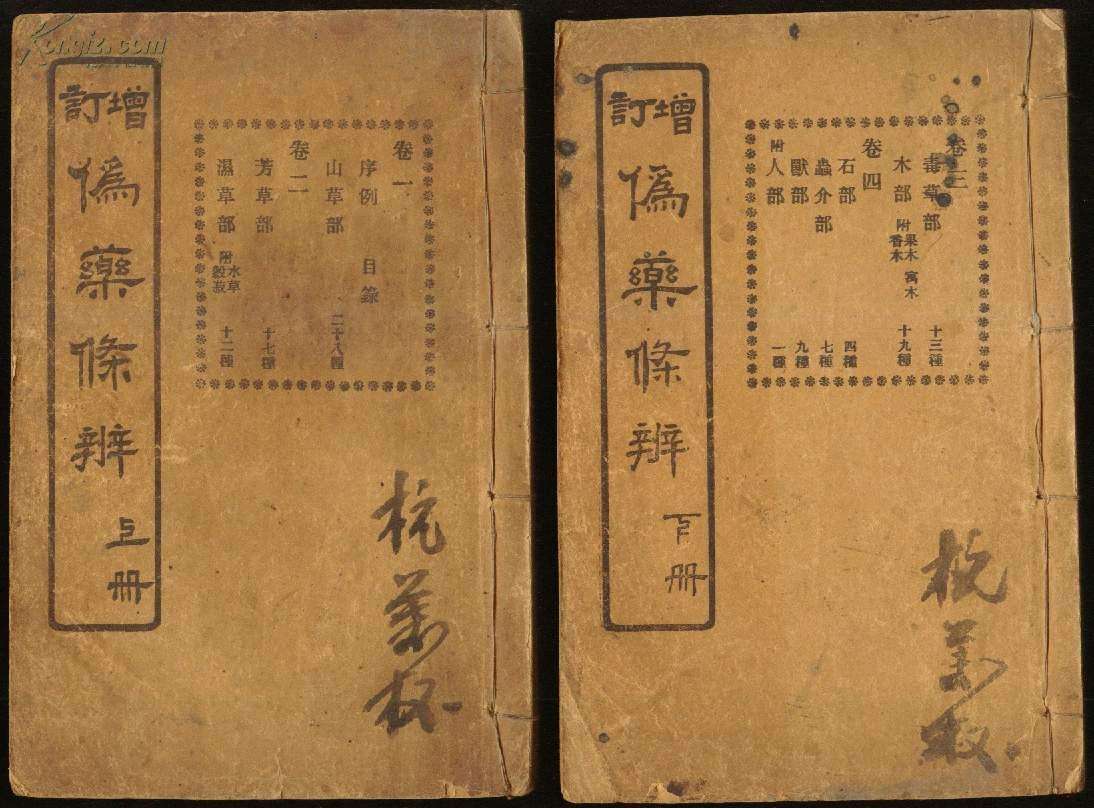 Kongfz.com
增訂
偽藥條辨
上冊
卷一
序例 目錄
山草部 二十八種
卷二
芳草部 十七種
濕草部 附水草穀菽 十二種
增訂
偽藥條辨
下冊
卷三
毒草部 十三種
木部 附果木香木 寓木 十九種
卷四
石部 四種
蟲介部 七種
獸部 九種
附人部 一種